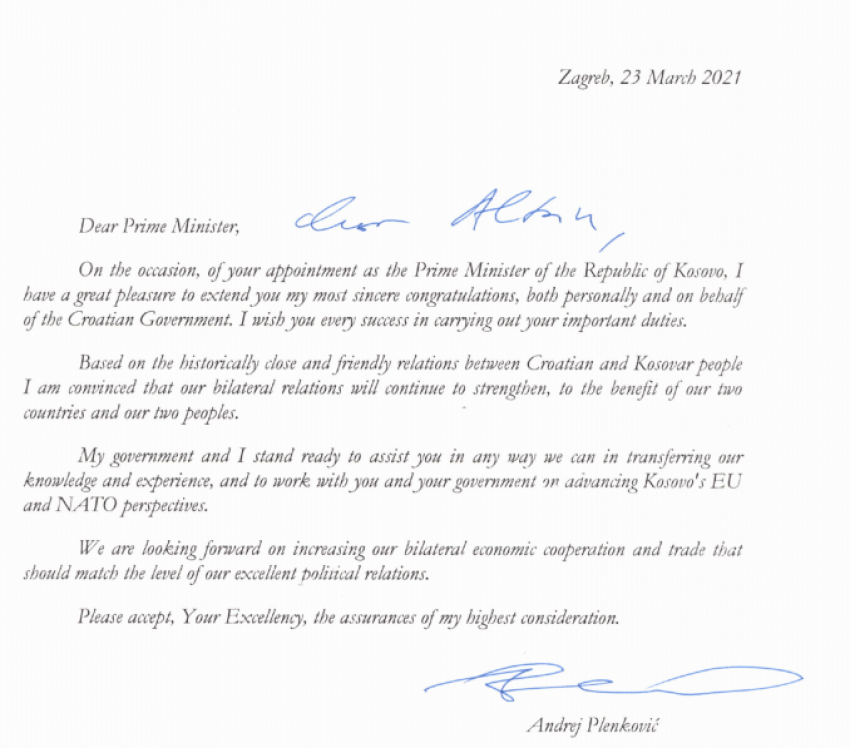 Zagreb, 23 March 2021
Dear Prime Minister, dear Albin,
On the occasion, of your appointment as the Prime Minister of the Republic of Kosovo, I
have a great pleasure to extend you my most sincere congratulations, both personally and on behalf
of the Croatian Government. I wish you every success in carrying out your important duties.
Based on the historically close and friendly relations between Croatian and Kosovar people
I am convinced that our bilateral relations will continue to strengthen, to the benefit of our two
countries and our two peoples.
My government and I stand ready to assist you in any way we can in transferring our
knowledge and experience, and to work with you and your government on advancing Kosovo's EU
and NATO perspectives.
We are looking forward on increasing our bilateral economic cooperation and trade that
should match the level of our excellent political relations.
Please accept, Your Excellency, the assurances of my highest consideration.
Andrej Plenković